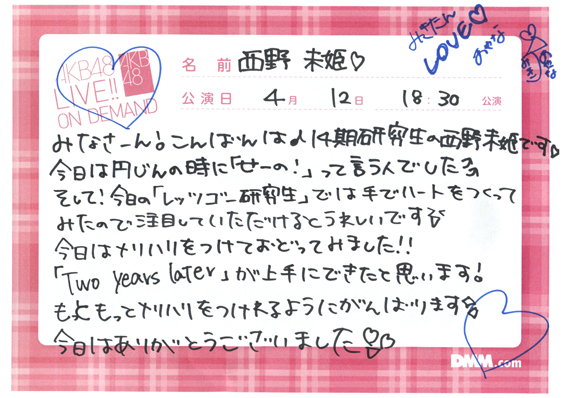 AKB48
LIVE!!
ON DEMAND
AKB
48
名前 西野 未姫♡
公演日 4月 12日 18:30 公演
みきたん
LOVE♡
みなさーん!こんばんは♪14期研究生の西野未姫です♡
今日は円じんの時に「せーの!」って言う人でした
そして!今日の「レッツゴー研究生」では手でハートをつくって
みたので注目していただけるとうれしいです
今日はメリハリをつけておどってみました!!
「Two years later」が上手にできたと思います!
もっともっとメリハリをつけれるようにがんばります
今日はありがとうございました♡
DMM.com